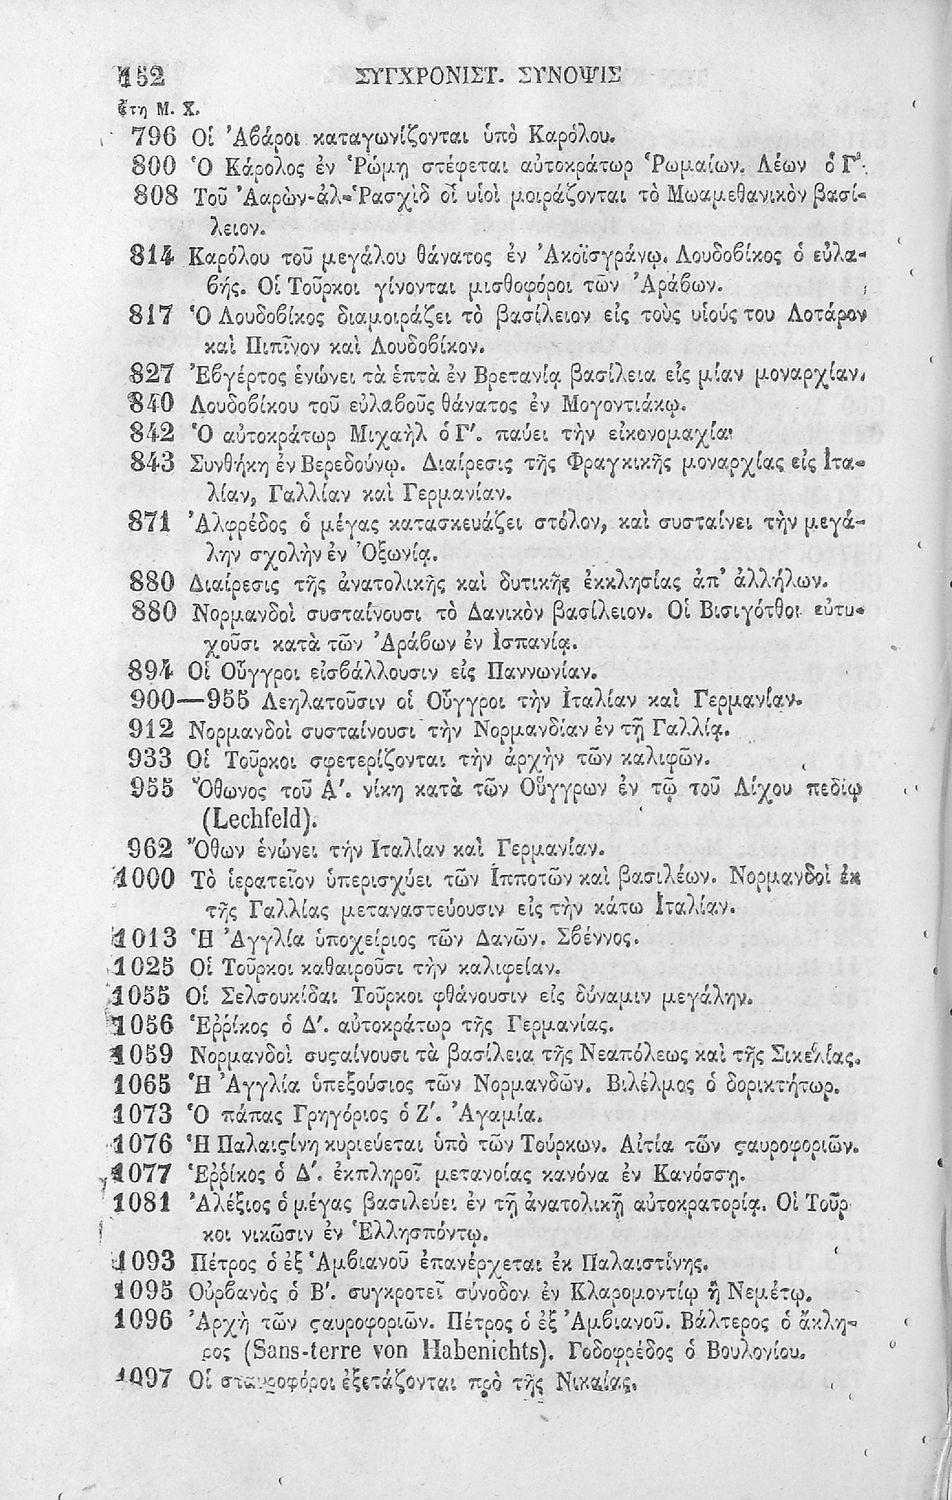 152 ΣΥΓΧΡΟΝΙΣΤ. ΣΥΝΟΨΙΣ
ἔτη Μ. Χ.
796 Οἱ Ἀβάροι καταγωνίζονται ὑπὸ Καρόλου.
800 Ὁ Κάρολος ἐν Ῥώμῃ στέφεται αὐτοκράτωρ Ῥωμαίων. Λέων ὁ Γʹ.
808 Τοῦ Ἀαρὼν-ἀλ-Ῥασχὶδ οἱ υἱοὶ μοιράζονται τὸ Μωαμεθανικὸν βασί-
λειον.
814 Καρόλου τοῦ μεγάλου θάνατος ἐν Ἀκοϊσγράνῳ. Λουδοβίκος ὁ εὐλα-
βής. Οἱ Τοῦρκοι γίνονται μισθοφόροι τῶν Ἀράβων.
817 Ὁ Λουδοβίκος διαμοιράζει τὸ βασίλειον εἰς τοὺς υἱούς του Λοτάρον
καὶ Πιπῖνον καὶ Λουδοβίκον.
827 Ἐβγέρτος ἑνώνει τὰ ἑπτὰ ἐν Βρετανίᾳ βασίλεια εἰς μίαν μοναρχίαν.
840 Λουδοβίκου τοῦ εὐλαβοῦς θάνατος ἐν Μογοντιάκῳ.
842 Ὁ αὐτοκράτωρ Μιχαὴλ ὁ Γʹ. παύει τὴν εἰκονομαχίαν
843 Συνθήκη ἐν Βερεδούνῳ. Διαίρεσις τῆς Φραγκικῆς μοναρχίας εἰς Ἰτα-
λίαν, Γαλλίαν καὶ Γερμανίαν.
871 Ἀλφρέδος ὁ μέγας κατασκευάζει στόλον, καὶ συσταίνει τὴν μεγά-
λην σχολὴν ἐν Ὀξωνίᾳ.
880 Διαίρεσις τῆς ἀνατολικῆς καὶ δυτικῆς ἐκκλησίας ἀπ’ ἀλλήλων.
880 Νορμανδοὶ συσταίνουσι τὸ Δανικὸν βασίλειον. Οἱ Βισιγότθοι εὐτυ-
χοῦσι κατὰ τῶν Ἀράβων ἐν Ἱσπανίᾳ.
894 Οἱ Οὖγγροι εἰσβάλλουσιν εἰς Παννωνίαν.
900—955 Λεηλατοῦσιν οἱ Οὖγγροι τὴν Ἰταλίαν καὶ Γερμανίαν.
912 Νορμανδοὶ συσταίνουσι τὴν Νορμανδίαν ἐν τῇ Γαλλίᾳ.
933 Οἱ Τοῦρκοι σφετερίζονται τὴν ἀρχὴν τῶν καλιφῶν.
955 Ὄθωνος τοῦ Αʹ. νίκη κατὰ τῶν Οὕγγρων ἐν τῷ τοῦ Λίχου πεδίῳ
(Lechfeld).
962 Ὄθων ἑνώνει τὴν Ἰταλίαν καὶ Γερμανίαν.
1000 Τὸ ἱερατεῖον ὑπερισχύει τῶν Ἱπποτῶν καὶ βασιλέων. Νορμανδοὶ ἐκ
τῆς Γαλλίας μεταναστεύουσιν εἰς τὴν κάτω Ἰταλίαν.
1013 Ἡ Ἀγγλία ὑποχείριος τῶν Δανῶν. Σβέννος.
1025 Οἱ Τοῦρκοι καθαιροῦσι τὴν καλιφείαν.
1055 Οἱ Σελσουκίδαι Τοῦρκοι φθάνουσιν εἰς δύναμιν μεγάλην.
1056 Ἐῤῥίκος ὁ Δʹ. αὐτοκράτωρ τῆς Γερμανίας.
1059 Νορμανδοὶ συϛαίνουσι τὰ βασίλεια τῆς Νεαπόλεως καὶ τῆς Σικελίας.
1065 Ἡ Ἀγγλία ὑπεξούσιος τῶν Νορμανδῶν. Βιλέλμος ὁ δορικτήτωρ.
1073 Ὁ πάπας Γρηγόριος ὁ Ζʹ. Ἀγαμία.
1076 Ἡ Παλαιϛίνη κυριεύεται ὑπὸ τῶν Τούρκων. Αἰτία τῶν ϛαυροφοριῶν.
1077 Ἐῤῥίκος ὁ Δʹ. ἐκπληροῖ μετανοίας κανόνα ἐν Κανόσσῃ.
1081 Ἀλέξιος ὁ μέγας βασιλεύει ἐν τῇ ἀνατολικῇ αὐτοκρατορίᾳ. Οἱ Τοῦρ
κοι νικῶσιν ἐν Ἑλλησπόντῳ.
1093 Πέτρος ὁ ἐξ Ἀμβιανοῦ ἐπανέρχεται ἐκ Παλαιστίνης.
1095 Οὐρβανὸς ὁ Βʹ. συγκροτεῖ σύνοδον ἐν Κλαρομοντίῳ ἢ Νεμέτῳ.
1096 Ἀρχὴ τῶν ϛαυροφοριῶν. Πέτρος ὁ ἐξ Ἀμβιανοῦ. Βάλτερος ὁ ἄκλη-
ρος (Sans-terre von Habenichts). Γοδοφρέδος ὁ Βουλονίου.
1097 Οἱ σταυροφόροι ἐξετάζονται πρὸ τῆς Νικαίας.